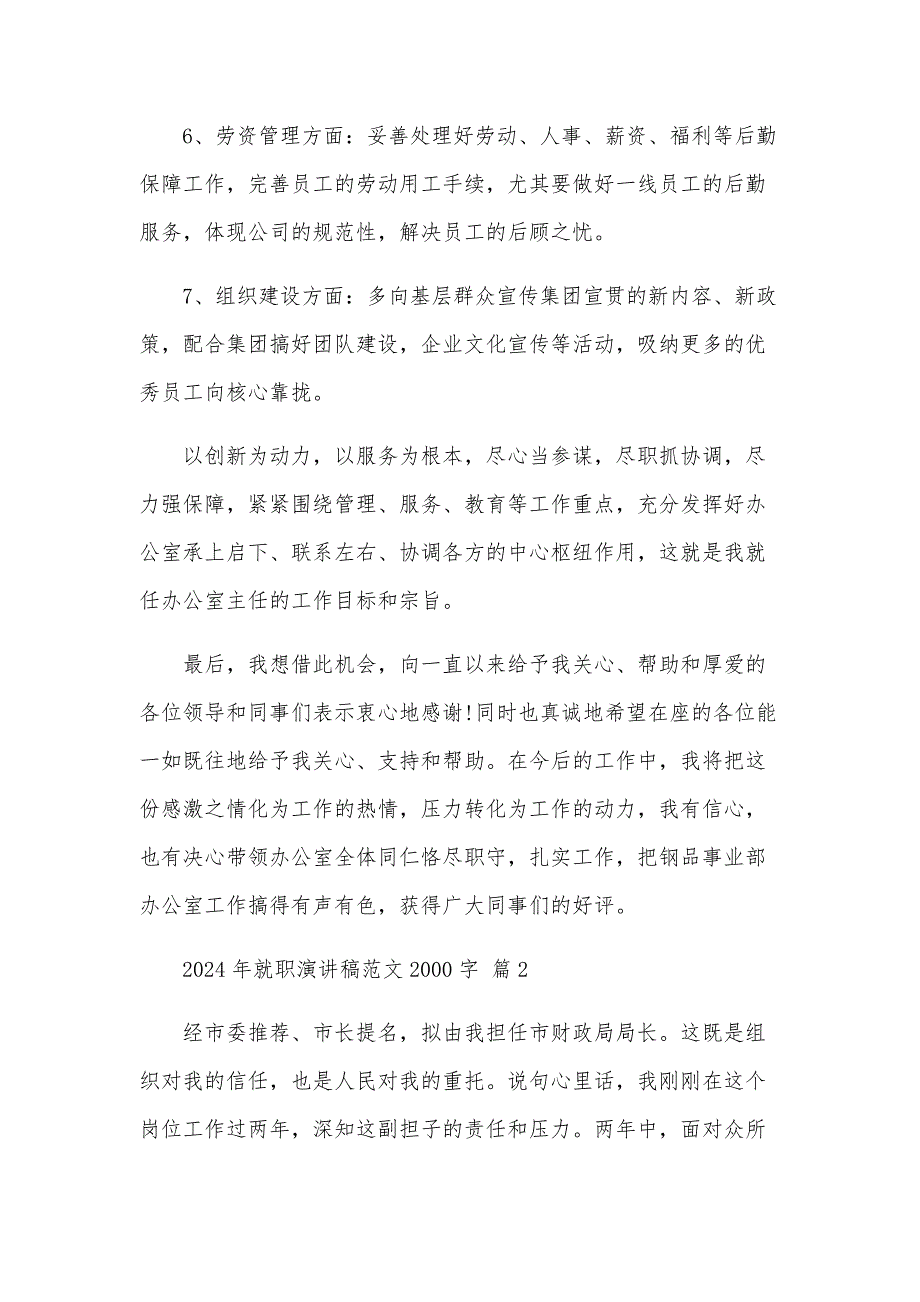 6、劳资管理方面：妥善处理好劳动、人事、薪资、福利等后勤
保障工作，完善员工的劳动用工手续，尤其要做好一线员工的后勤
服务，体现公司的规范性，解决员工的后顾之忧。
7、组织建设方面：多向基层群众宣传集团宣贯的新内容、新政
策，配合集团搞好团队建设，企业文化宣传等活动，吸纳更多的优
秀员工向核心靠拢。
以创新为动力，以服务为根本，尽心当参谋，尽职抓协调，尽
力强保障，紧紧围绕管理、服务、教育等工作重点，充分发挥好办
公室承上启下、联系左右、协调各方的中心枢纽作用，这就是我就
任办公室主任的工作目标和宗旨。
最后，我想借此机会，向一直以来给予我关心、帮助和厚爱的
各位领导和同事们表示衷心地感谢!同时也真诚地希望在座的各位能
一如既往地给予我关心、支持和帮助。在今后的工作中，我将把这
份感激之情化为工作的热情，压力转化为工作的动力，我有信心，
也有决心带领办公室全体同仁恪尽职守，扎实工作，把钢品事业部
办公室工作搞得有声有色，获得广大同事们的好评。
2024 年就职演讲稿范文 2000 字 篇 2
经市委推荐、市长提名，拟由我担任市财政局局长。这既是组
织对我的信任，也是人民对我的重托。说句心里话，我刚刚在这个
岗位工作过两年，深知这副担子的责任和压力。两年中，面对众所